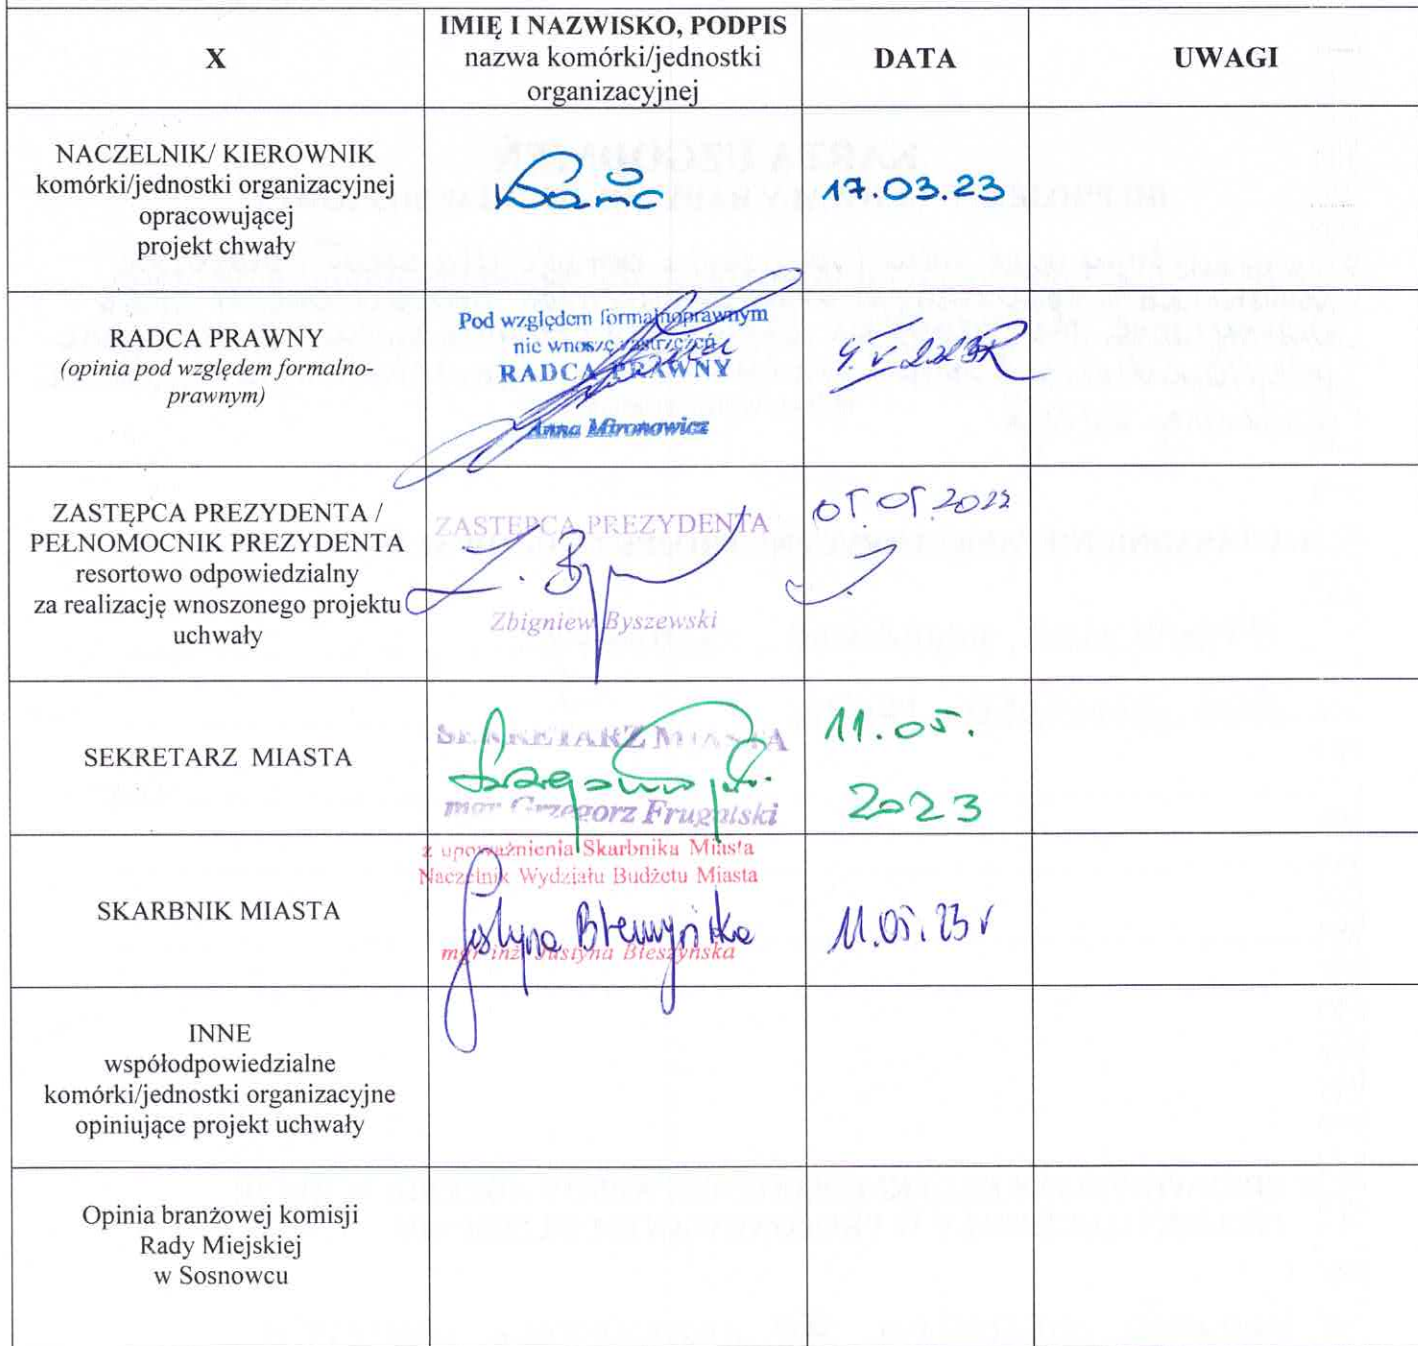 X
IMIĘ I NAZWISKO, PODPIS
nazwa komórki/jednostki
organizacyjnej
DATA
UWAGI
NACZELNIK/ KIEROWNIK
komórki/jednostki organizacyjnej
opracowującej
projekt chwały
17.03.23
RADCA PRAWNY
(opinia pod względem formalno-
prawnym)
Pod względem formalnoprawnym
nie wnoszę zastrzeżeń
RADCA PRAWNY
Anna Mironowicz
ZASTĘPCA PREZYDENTA /
PEŁNOMOCNIK PREZYDENTA
resortowo odpowiedzialny
za realizację wnoszonego projektu
uchwały
ZASTĘPCA PREZYDENTA
Zbigniew Byszewski
05.05.2022
SEKRETARZ MIASTA
SEKRETARZ MIASTA
mgr Grzegorz
11.05.
2023
SKARBNIK MIASTA
z upoważnienia Skarbnika Miasta
Naczelnik Wydziału Budżetu Miasta
mgr inż. Justyna Błeszyńska
11.05.23 r
INNE
współodpowiedzialne
komórki/jednostki organizacyjne
opiniujące projekt uchwały
Opinia branżowej komisji
Rady Miejskiej
w Sosnowcu